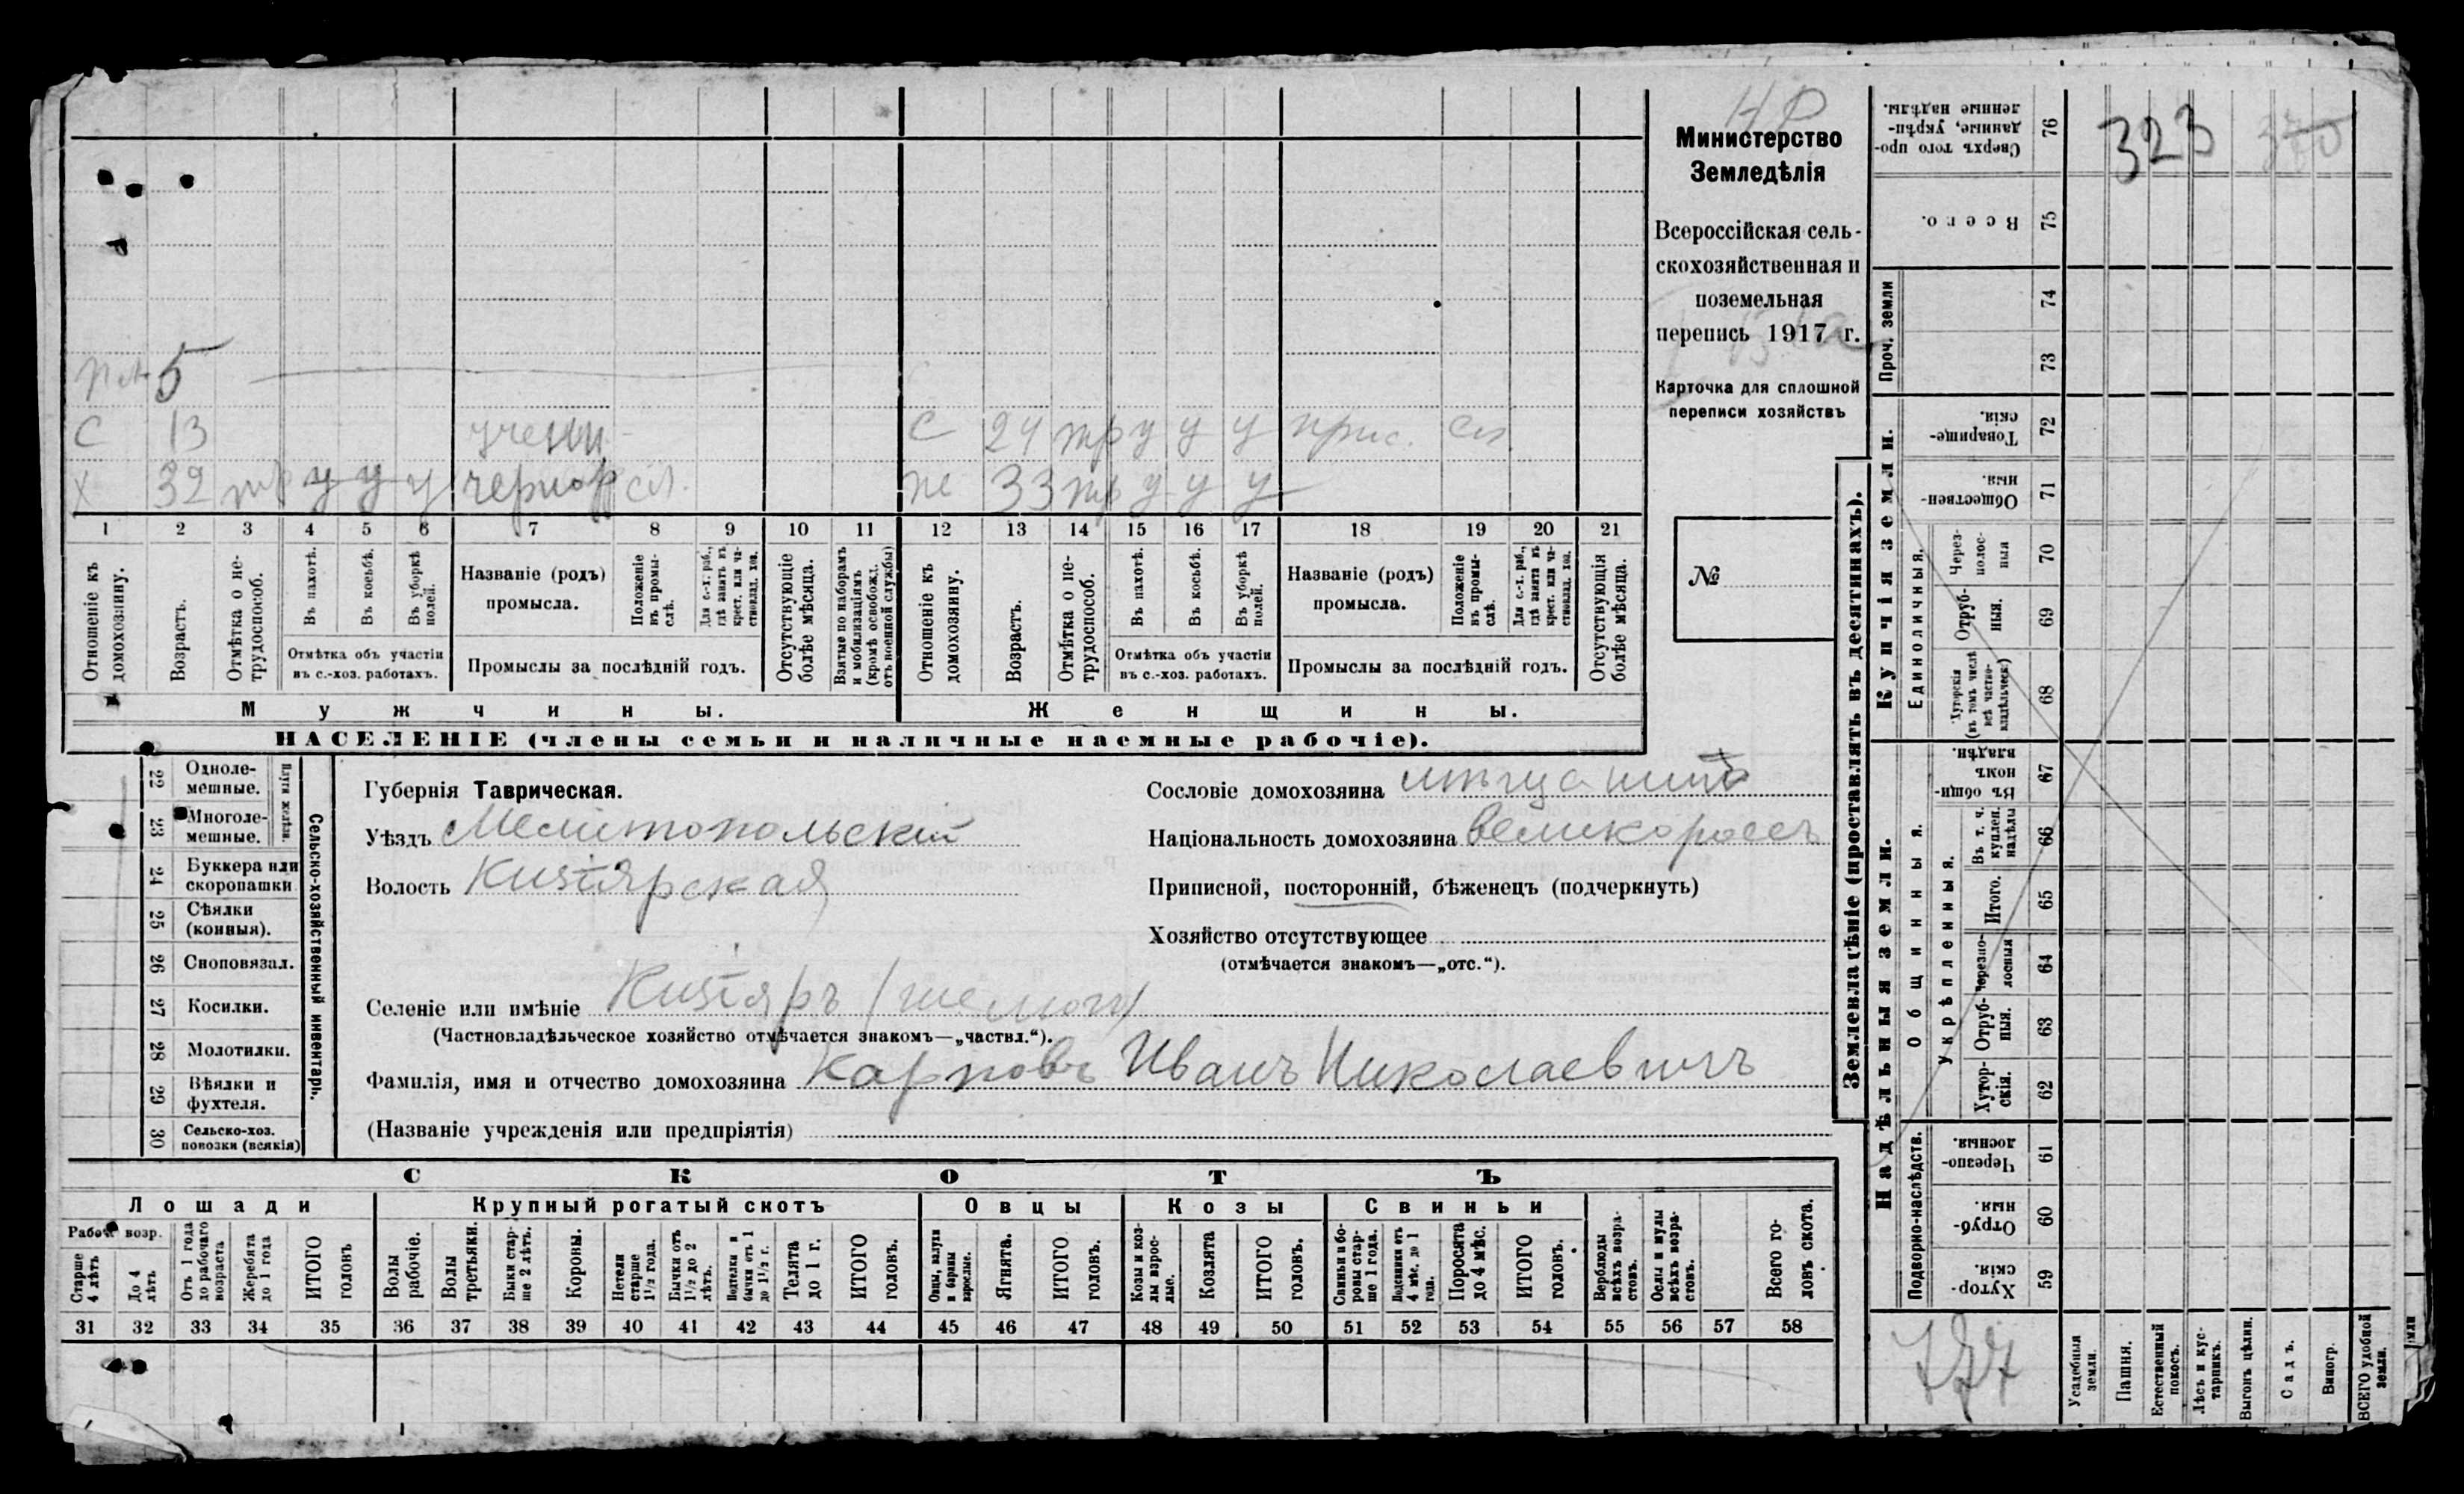 НР
Министерство
Земледѣлія
Всероссійская сель-
скохозяйственная и
поземельная
перепись 1917 г.
Карточка для сплошной
переписи хозяйствъ
№
5
С 13 учени С 24 тр у у у прис. сл
Х 32 тр у у у черног сл. ж 33 тр у у у
1 2 3 4 5 6 7 8 9 10 11 12 13 14 15 16 17 18 19 20 21
Отношеніе къ домохозяину.
Возрастъ.
Отмѣтка о не-трудоспособ.
Въ пахотѣ.
Въ косьбѣ.
Въ уборкѣ полей.
Отмѣтка объ участіи
въ с.-хоз. работахъ.
Названіе (родъ)
промысла.
Положеніе въ промы-слѣ.
Для с.-х. раб., гдѣ занятъ въ крест. или ча-стновлад. хоз.
Промыслы за послѣдній годъ.
Отсутствующіе болѣе мѣсяца.
Взятые по наборамъ и мобилизаціямъ (кромѣ освобожд. отъ военной службы)
Отношеніе къ домохозяину.
Возрастъ.
Отмѣтка о не-трудоспособ.
Въ пахотѣ.
Въ косьбѣ.
Въ уборкѣ полей.
Отмѣтка объ участіи
въ с.-хоз. работахъ.
Названіе (родъ)
промысла.
Положеніе въ промы-слѣ.
Для с.-х. раб., гдѣ занята въ крест. или ча-стновлад. хоз.
Промыслы за послѣдній годъ.
Отсутствующія болѣе мѣсяца.
Мужчины. Женщины.
НАСЕЛЕНІЕ (члены семьи и наличные наемные рабочіе).
Сельско-хозяйственный инвентарь.
22 Одноле-мешные.
23 Многоле-мешные.
24 Буккера или скоропашки
25 Сѣялки (конныя).
26 Сноповязал.
27 Косилки.
28 Молотилки.
29 Вѣялки и фухтеля.
30 Сельско-хоз. повозки (всякія)
Губернія Таврическая.
Уѣздъ Мелитопольскій
Волость Кизіярская
Селеніе или имѣніе Кизіяръ
(Частновладѣльческое хозяйство отмѣчается знакомъ—„частвл.“).
Фамилія, имя и отчество домохозяина Карповъ Иванъ Николаевичъ
(Названіе учрежденія или предпріятія)
Сословіе домохозяина мѣщанинъ
Національность домохозяина великороссъ
Приписной, посторонній, бѣженецъ (подчеркнуть)
Хозяйство отсутствующее
(отмѣчается знакомъ—„отс.“).
СКОТЪ
Лошади Крупный рогатый скотъ Овцы Козы Свиньи
Рабоч. возр.
Старше 4 лѣтъ
До 4 лѣтъ
Отъ 1 года до рабочаго возраста
Жеребята до 1 года
ИТОГО головъ
Волы рабочіе.
Волы третьяки.
Быки стар-ше 2 лѣтъ.
Коровы.
Нетели старше 1½ года.
Бычки отъ 1½ до 2 лѣтъ.
Подтелки и бычки отъ 1 до 1½ г.
Телята до 1 г.
ИТОГО головъ.
Овцы, валухи и бараны взрослые.
Ягнята.
ИТОГО головъ.
Козы и коз-лы взрос-лые.
Козлята
ИТОГО головъ.
Свиньи и бо-ровы стар-ше 1 года.
Подсвинки отъ 4 мѣс. до 1 года.
Поросята до 4 мѣс.
ИТОГО головъ.
Верблюды всѣхъ возра-стовъ.
Ослы и мулы всѣхъ возра-стовъ.
Всего го-ловъ скота.
31 32 33 34 35 36 37 38 39 40 41 42 43 44 45 46 47 48 49 50 51 52 53 54 55 56 57 58
Землевладѣніе (проставлять въ десятинахъ).
Надѣльныя земли. Купчія земли. Проч. земли
Подворно-наслѣдств. Общинныя. Укрѣпленныя. Единоличныя.
76 Сверхъ того про-данные, укрѣп-ленные надѣлы.
75 Всего.
74
73
72 Товарище-скія.
71 Обществен-ныя.
70 Через-полос-ныя
69 Отруб-ныя.
68 Хуторскія (въ томъ числѣ всѣ частно-владѣльческ.)
67 Въ общин-номъ владѣн.
66 Въ т. ч. куплен. надѣлы
65 Итого.
64 Черезпо-лосныя
63 Отруб-ныя.
62 Хутор-скія.
61 Черезпо-лосныя.
60 Отруб-ныя.
59 Хутор-скія.
Усадебныя земли.
Пашня.
Естественный покосъ.
Лѣсъ и кус-тарникъ.
Выгонъ цѣлин.
Садъ.
Виногр.
ВСЕГО удобной земли.
323
370
777